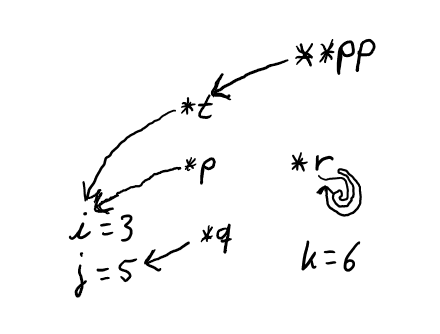 **pp
*t
*p
*r
i=3
*q
j=5
k=6